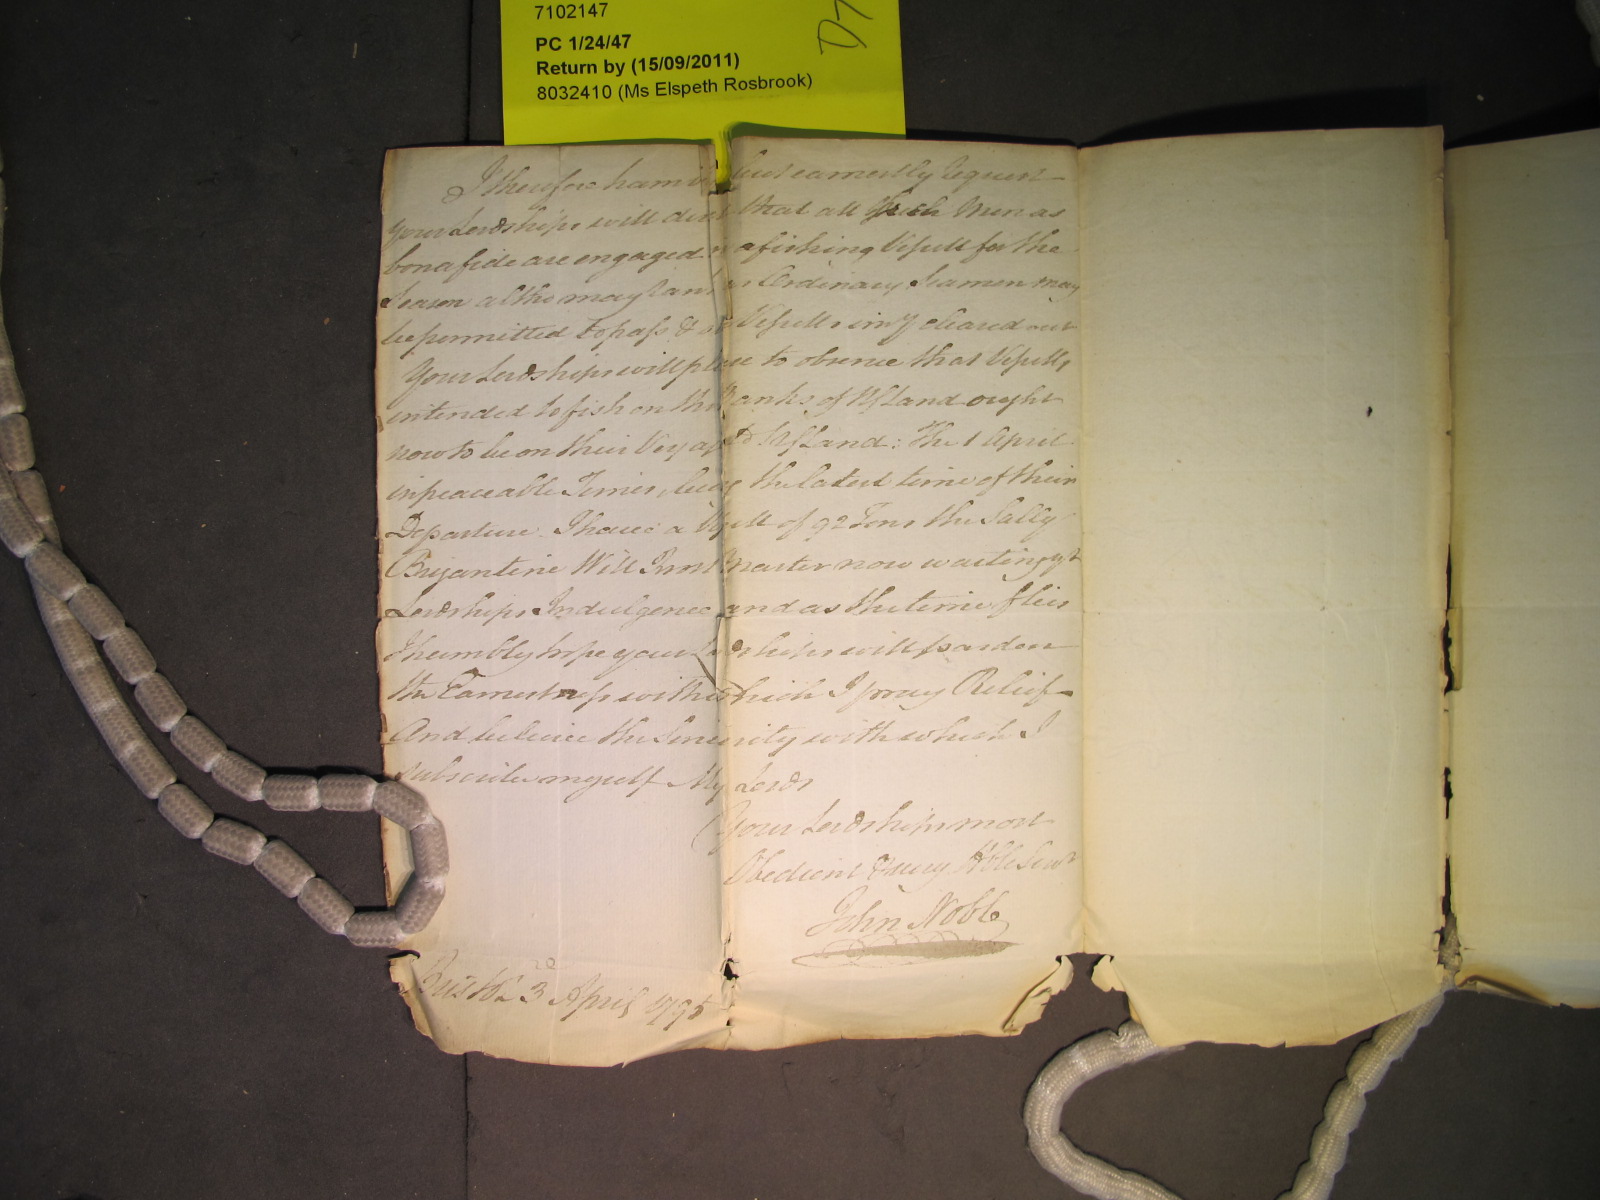 7102147
PC 1/24/47
Return by (15/09/2011)
8032410 (Ms Elspeth Rosbrook)
I therefore but earnestly Request
your Lordships will that all Such Men as
bonafide are engaged a fishing Vessell for the
Season altho may rank as Ordinary Seamen may
be permitted to pass & Vessells cleared out
Your Lordships will please to observe that Vessells
intended to fish on the Banks of Nfland ought
now to be on their Voyage to Nfland: The 1 April
in peaceable Times, being the latest time of their
Departure. I have a Vessell of 92 Tons the Sally
Brigantine Will Master now waiting yr
Lordships Indulgence and as the time flies
I humbly hope your Lordships will pardon
the Earnestness with which I pray Relief
And believe the Sincerity with which I
subscribe myself My Lords
Your Lordships most
Obedient & very Hble Servt
John Noble
Bristol 3 April 1795